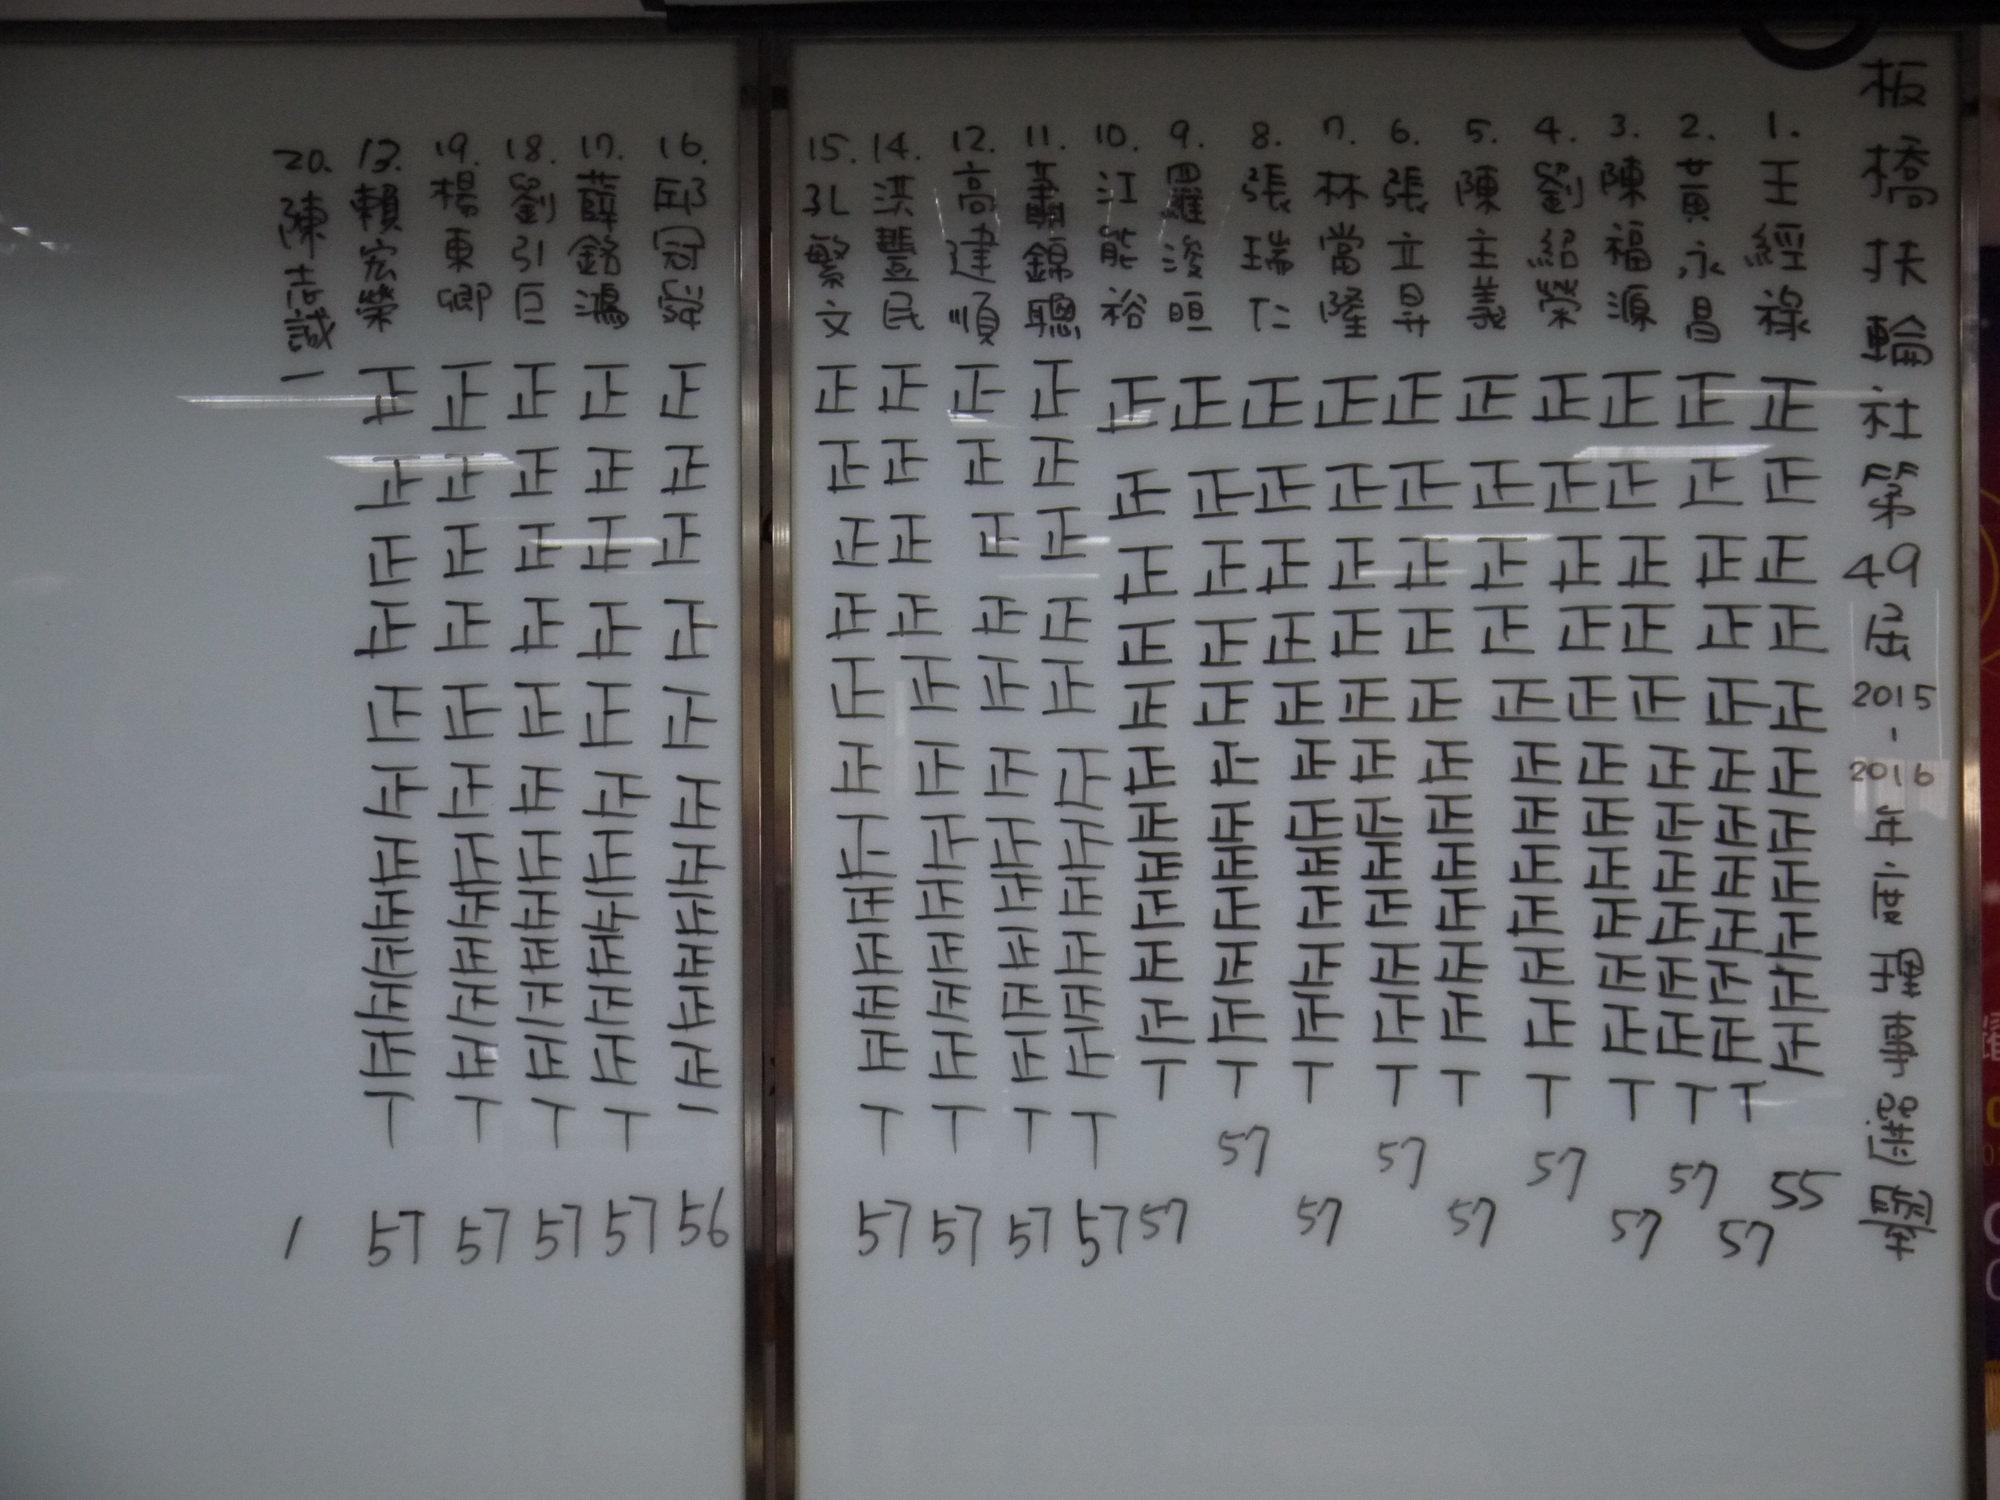 板橋扶輪社第49屆2015-2016年度理事選舉
1.王經祿 正正正正正正正正正正正 55
2.黃永昌 正正正正正正正正正正正丅 57
3.陳福源 正正正正正正正正正正正丅 57
4.劉紹榮 正正正正正正正正正正正丅 57
5.陳主義 正正正正正正正正正正正丅 57
6.張立昇 正正正正正正正正正正正丅 57
7.林當隆 正正正正正正正正正正正丅 57
8.張瑞仁 正正正正正正正正正正正丅 57
9.羅浚晅 正正正正正正正正正正正丅 57
10.江能裕 正正正正正正正正正正正丅 57
11.葉錦聰 正正正正正正正正正正正丅 57
12.高建順 正正正正正正正正正正正丅 57
14.洪豐民 正正正正正正正正正正正丅 57
15.孔繁文 正正正正正正正正正正正丅 57
16.邱冠 正正正正正正正正正正正一 56
17.薛銘鴻 正正正正正正正正正正正丅 57
18.劉引巨 正正正正正正正正正正正丅 57
19.楊東卿 正正正正正正正正正正正丅 57
13.賴宏榮 正正正正正正正正正正正丅 57
20.陳志誠 一 1